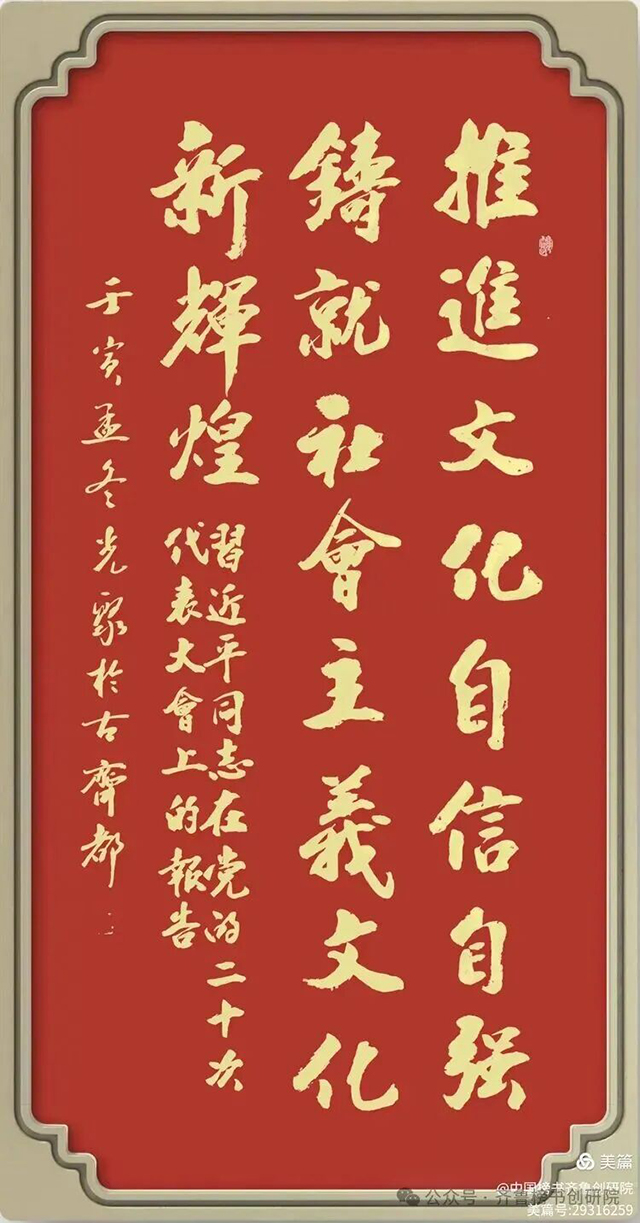 推進文化自信自强
鑄就社會主義文化
新輝煌
習近平同志在党的二十次
代表大會上的報告
壬寅孟冬光聚於古齊都
美篇
@中国榜书齐鲁创研院
公众号·齐鲁榜书创研院
美篇号:29316259